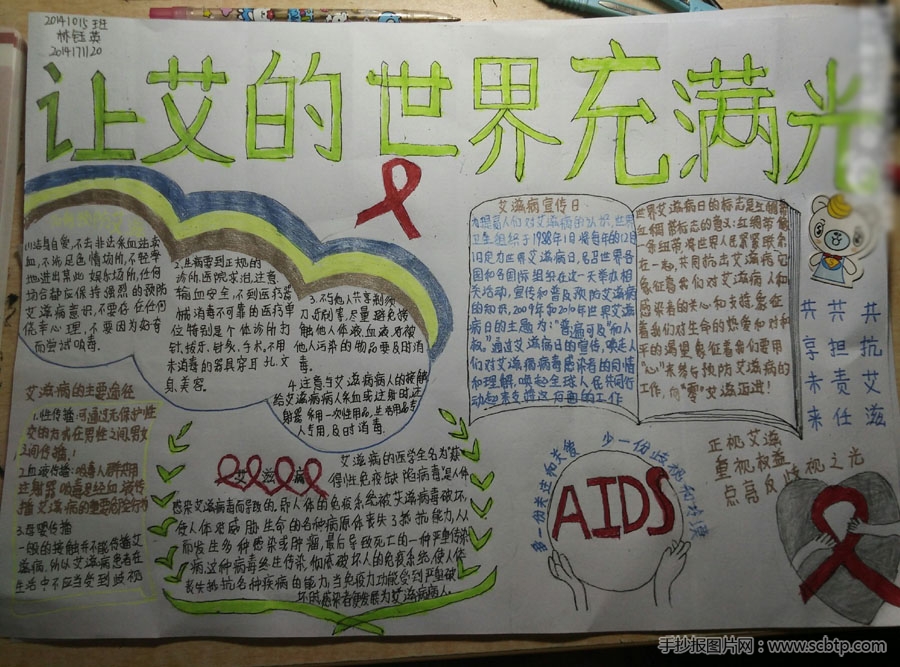 20141015班
林钰英
20141120
让艾的世界充满光
1.洁身自爱,不去非法采血站卖
血,不涉足色情场所,不轻率
地进出某些娱乐场所,任何
场合都应保持强烈的预防
艾滋病意识,不要存在任何
侥幸心理,不要因为好奇
而尝试吸毒.
2.生病要到正规的
诊所,医院求治,注意
输血安全,不到医疗器
械消毒不可靠的医疗单
位特别是个体诊所打
针,拔牙,针灸,手术.不用
未消毒的器具穿耳孔,文
身,美容.
3.不与他人共享剃须
刀,牙刷等,尽量避免接
触他人体液,血液,对被
他人污染的物品要及时消
毒.
4.注意与艾滋病病人的接触
给艾滋病病人采血或注射时,注
射器采用一次性用品,生活用品专
人专用,及时消毒.
艾滋病宣传日.
为提高人们对艾滋病的认识,世界
卫生组织于1988年1月将每年的12月
1日定为世界艾滋病日,号召世界各
国和各国际组织在这一天举办相
关活动,宣传和普及预防艾滋病
的知识,2009年和2010年世界艾滋
病日的主题为:“普遍可及”和人
权.”通过艾滋病日的宣传,唤起人
们对艾滋病病毒感染者的同情
和理解,唤起全球人民共同行
动起来支持这方面的工作
世界艾滋病日的标志是红绸带
红绸带标志的意义:红绸带像
一条纽带,将世界人民紧紧联系
在一起,共同抗击艾滋病,它
象征着我们对艾滋病人和
感染者的关心和支持;象征
着我们对生命的热爱和对和
平的渴望,象征着我们要用
“心”来参与预防艾滋病的
工作,向“零”艾滋迈进!
共抗艾滋
共担责任
共享未来
艾滋病的主要途径
1.性传播:可通过无保护性
交的方式在男性之间,男女
之间传播.
2.血液传播:吸毒人群共用
注射器吸毒是经血液传
播艾滋病的重要危险行为
3.母婴传播
一般的接触并不能传播艾
滋病,所以艾滋病患者在
生活中不应当受到歧视
艾滋病
艾滋病的医学全名为获
得性免疫缺陷病毒是人体
感染艾滋病毒而导致的.即人体的免疫系统被艾滋病毒破坏,
使人体对威胁生命的各种病原体丧失了抵抗能力,从
而发生多种感染或肿瘤,最后导致死亡的一种严重传染
病这种病毒终生传染,彻底破坏人的免疫系统,使人体
丧失抵抗各种疾病的能力,当免疫力功能受到严重破
坏时感染者便发展为艾滋病病人.
少一份歧视和排斥
AIDS
正视艾滋
重视权益
点亮反歧视之光
手抄报图片网:www.scbtp.com